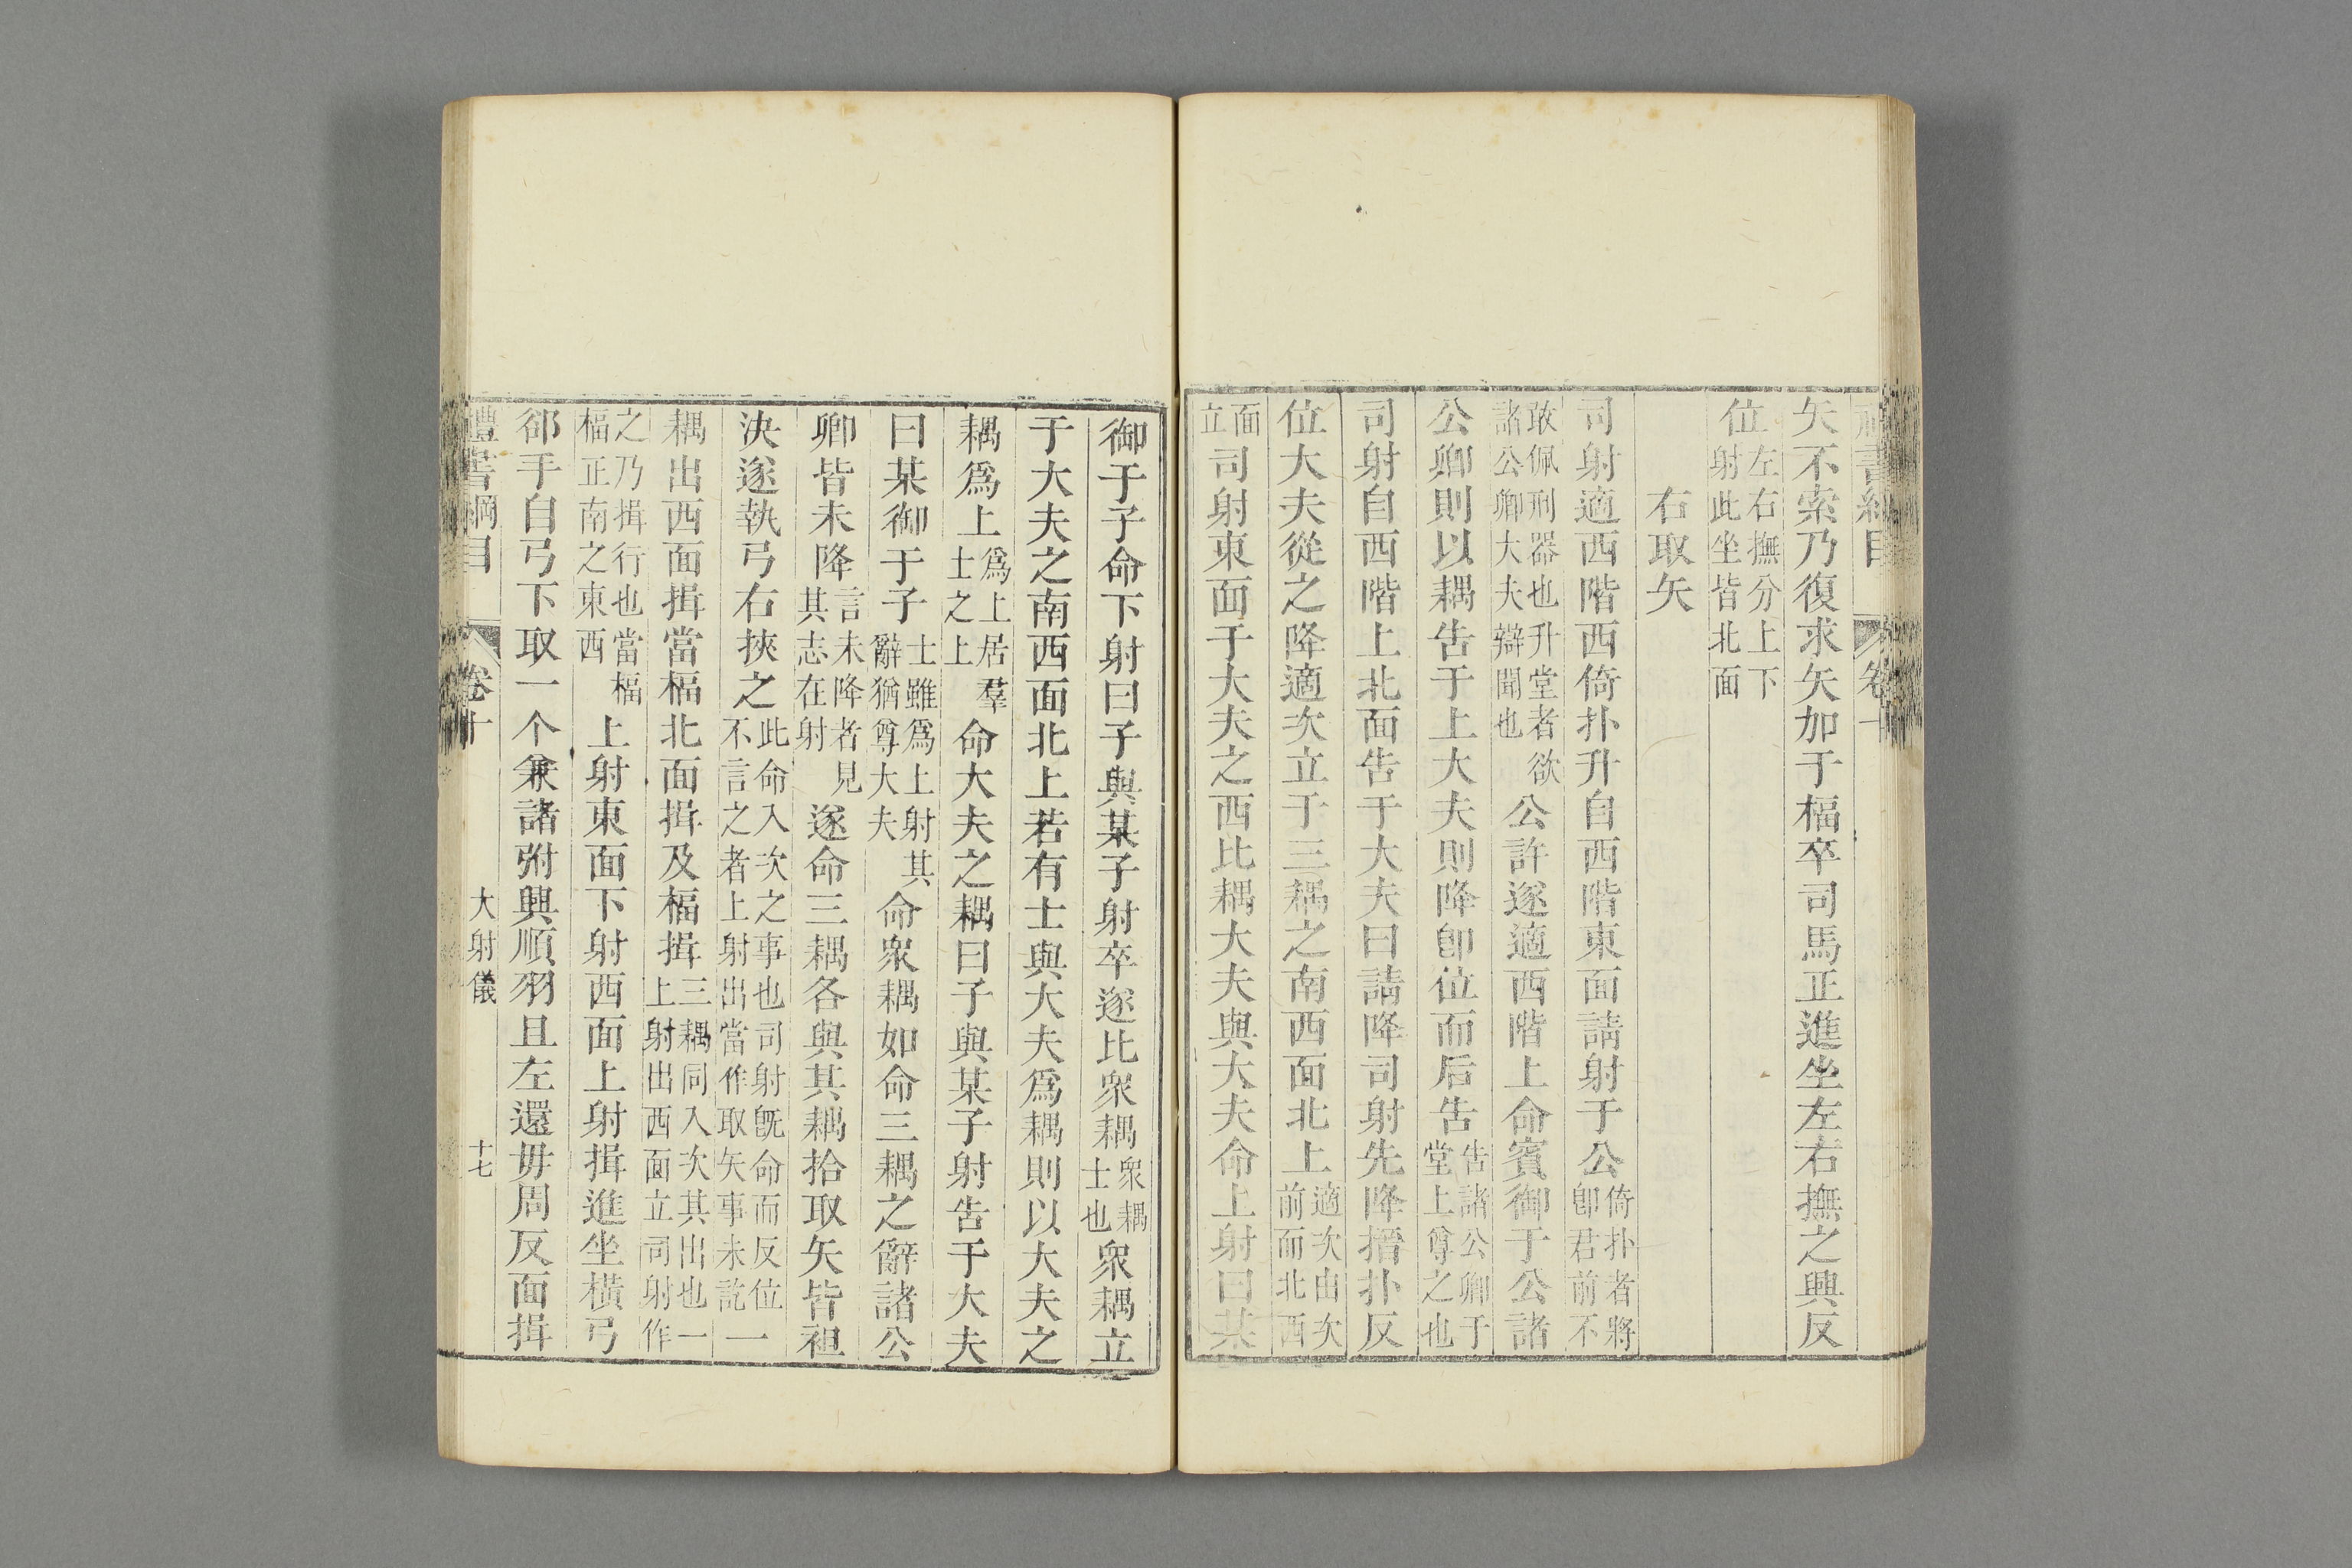 禮書綱目 卷十
矢不索乃復求矢加于楅卒司馬正進坐左右撫之興反
位左右撫分上下射此坐皆北面
右取矢
司射適西階西倚扑升自西階東面請射于公倚扑者將卽君前不
敢佩刑器也升堂者欲諸公卿大夫辯聞也公許遂適西階上命賓御于公諸
公卿則以耦告于上大夫則降卽位而后告告諸公卿于堂上尊之也
司射自西階上北面告于大夫曰請降司射先降搢扑反
位大夫從之降適次立于三耦之南西面北上適次由次前而北西
面立司射東面于大夫之西比耦大夫與大夫命上射曰某
御于子命下射曰子與某子射卒遂比衆耦衆耦士也衆耦立
于大夫之南西面北上若有士與大夫爲耦則以大夫之
耦爲上爲上居羣士之上命大夫之耦曰子與某子射告于大夫
曰某御于子士雖爲上射其辭猶尊大夫命衆耦如命三耦之辭諸公
卿皆未降言未降者見其志在射遂命三耦各與其耦拾取矢皆袒
決遂執弓右挾之此命入次之事也司射旣命而反位不言之者上射出當作取矢事未訖一
耦出西面揖當楅北面揖及楅揖三耦同入次其出也一上射出西面立司射作
之乃揖行也當楅楅正南之東西上射東面下射西面上射揖進坐橫弓
郤手自弓下取一个兼諸弣興順羽且左還毋周反面揖
禮書綱目 卷十 大射儀 十七